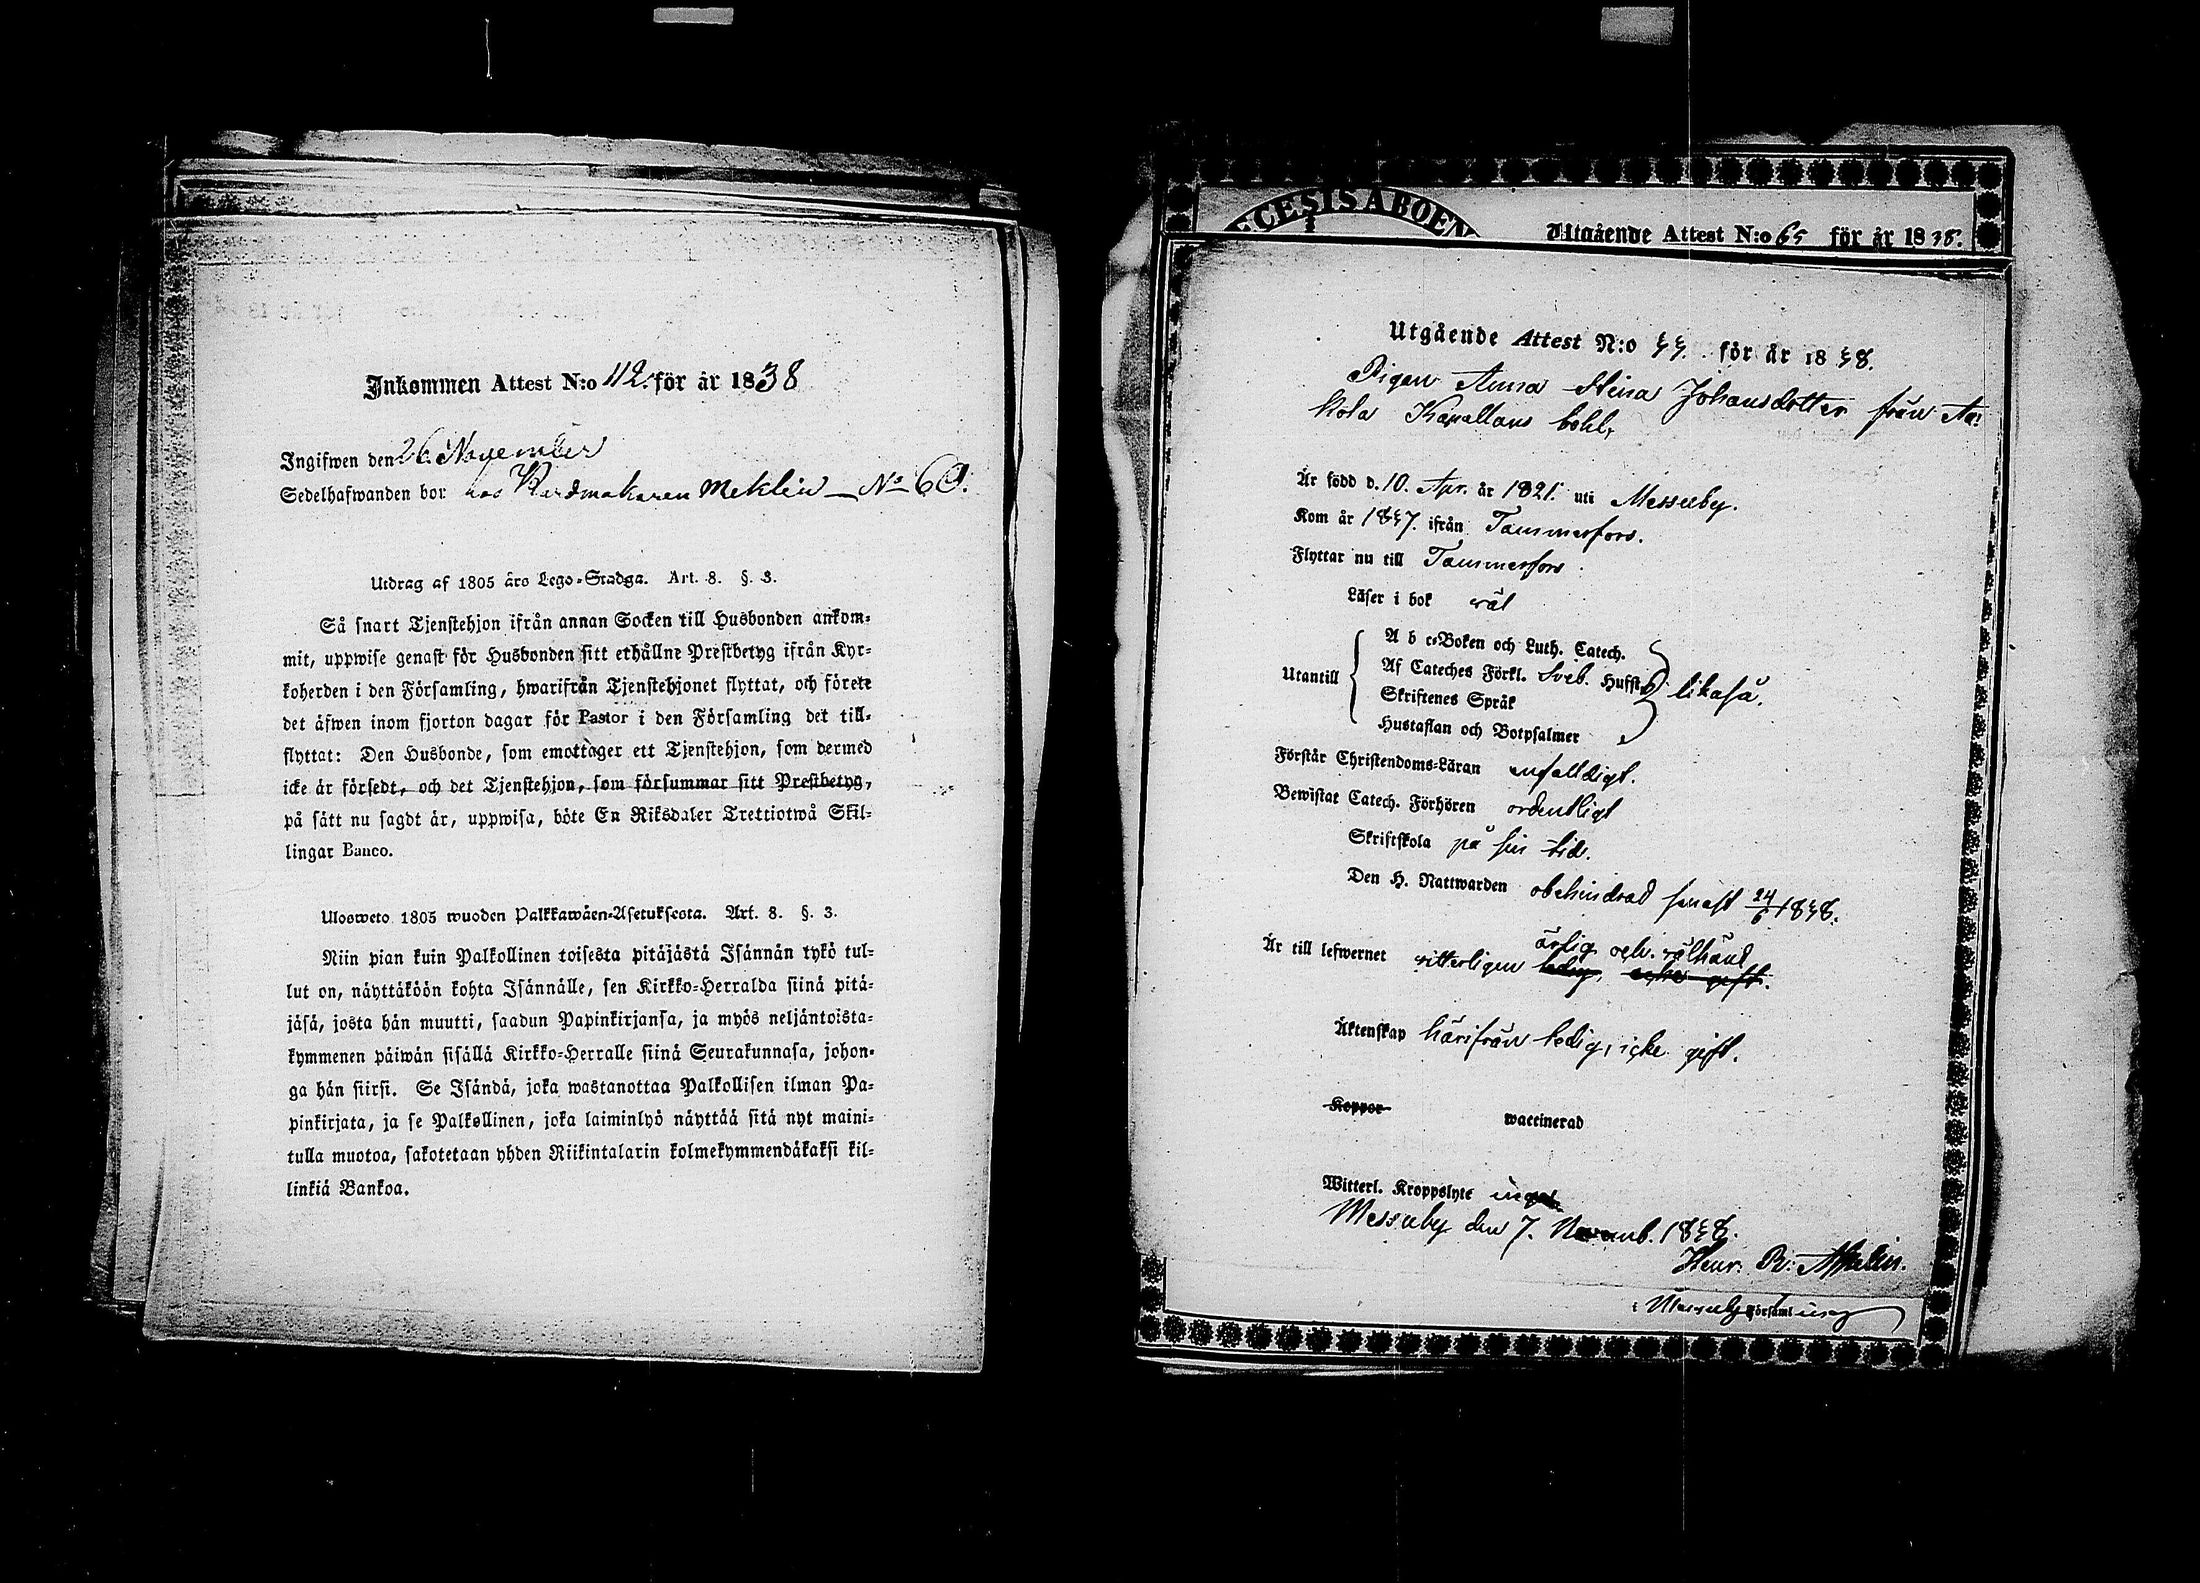 Inkommen Attest N:o 112. för år 1838
Ingifwen den 26. November
Sedelhafwanden bor hos Kardmakaren Meklin — No 60.
Utdrag af 1805 års Lego-Stadga. Art. 8. §. 3.
Så snart Tjenstehjon ifrån annan Socken till Husbonden ankom-
mit, uppwise genast för Husbonden sitt erhållne Prestbetyg ifrån Kyr-
koherden i den Församling, hwarifrån Tjenstehjonet flyttat, och förete
det äfwen inom fjorton dagar för Pastor i den Församling det till-
flyttat: Den Husbonde, som emottager ett Tjenstehjon, som dermed
icke är försedt, och det Tjenstehjon, som försummar sitt Prestbetyg,
på sätt nu sagdt är, uppwisa, böte En Riksdaler Trettiotwå Skil-
lingar Banco.
Ulosweto 1805 wuoden Palkkawäen-Asetuksesta. Art. 8. §. 3.
Niin pian kuin Palkollinen toisesta pitäjästä Isännän tykö tul-
lut on, näyttäköön kohta Isännälle, sen Kirkko-Herralda siinä pitä-
jäsä, josta hän muutti, saadun Papinkirjansa, ja myös neljäntoista-
kymmenen päiwän sisällä Kirkko-Herralle siinä Seurakunnasa, johon-
ga hän siirsi. Se Isändä, joka wastanottaa Palkollisen ilman Pa-
pinkirjata, ja se Palkollinen, joka laiminlyö näyttää sitä nyt maini-
tulla muotoa, sakotetaan yhden Riikintalarin kolmekymmendäkaksi kil-
linkiä Bankoa.
ECESIS ABOEN
Utgående Attest N:o 65 för år 1838.
Utgående Attest N:o 55. för år 1838.
Pigan Anna Stina Johansdotter från
Kapallans bohl,
Är född d. 10. Apr. år 1821. uti Messuby.
Kom år 1837. ifrån Tammerfors.
Flyttar nu till Tammerfors.
Läser i bok väl
Utantill
A b c-Boken och Luth. Catech.
Af Cateches Förkl. Sveb. Hufst.
Skriftenes Språk
Hustaflan och Botpsalmer
likaså.
Förstår Christendoms-Läran enfalldigt.
Bewistat Catech. Förhören ordentligt
Skriftskola på sin tid.
Den H. Nattwarden obehindrad senast 24/6 1838.
ärlig och välkänd
Är till lefwernet vitterligen ledig, icke gift.
Äktenskap härifrån ledig, icke gift.
Koppor waccinerad
Witterl. Kroppslyte inga
Messuby den 7. Novemb. 1838.
Henr. R:
Messuby Församl ing